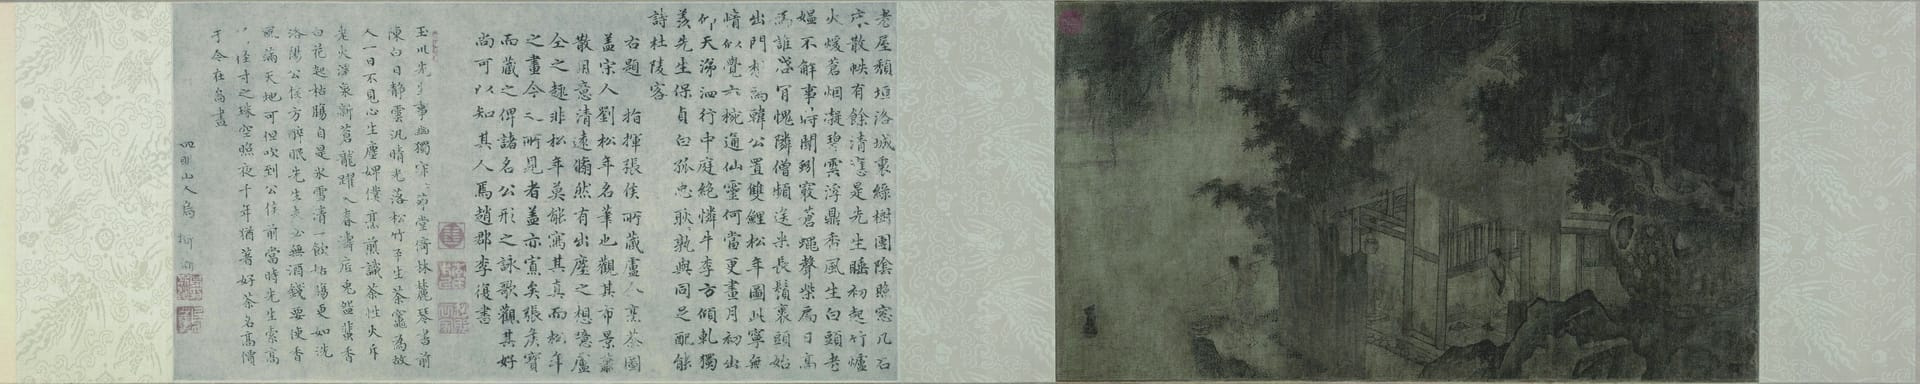 老屋頹垣洛城裏綠樹團陰照窓几石
床散帙有餘清應是先生睡初起竹爐
火煖蒼烟凝碧雲浮鼎香風生白頭老
媼不解事時聞蚓竅蒼蠅聲柴扃日高
為誰啓宜愧隣僧頻送米長鬚裹頭始
出門想為韓公置雙鯉松年圖此寧無
情似覺六椀通仙靈何當更畫月初出
仰天涕泗行中庭絕憐牛李方傾軋獨
羨先生保貞白孤忠耿耿孰與同足配能
詩杜陵客
右題 指揮張侯所藏盧仝烹茶圖
蓋宋人劉松年名筆也觀其布景蕭
散用意清遠翛然有出塵之想噫盧
仝之趣非松年莫能寫其真而松年
之畫今之所見者蓋亦寡矣張侯寶
而藏之俾諸名公形之詠歌觀其好
尚可以知其人焉趙郡李復書
玉川先生事幽獨寂寂茆堂倚林麓琴書前
陳白日靜雲汎晴光落松竹平生茶竈為故
人一日不見心生塵婢僕烹煎識茶性火斥
老火瀹泉新蒼龍躍入春濤底兔甌蜚香
白花起枯腸自是氷雪清一飲枯腸更如洗
洛陽公侯方醉眠先生煮茗無酒錢要使香
風滿天地可但吹到公侯前當時先生索高
徑寸之珠空照夜千年猶著好茶名高情
于今在圖畫
四明山人